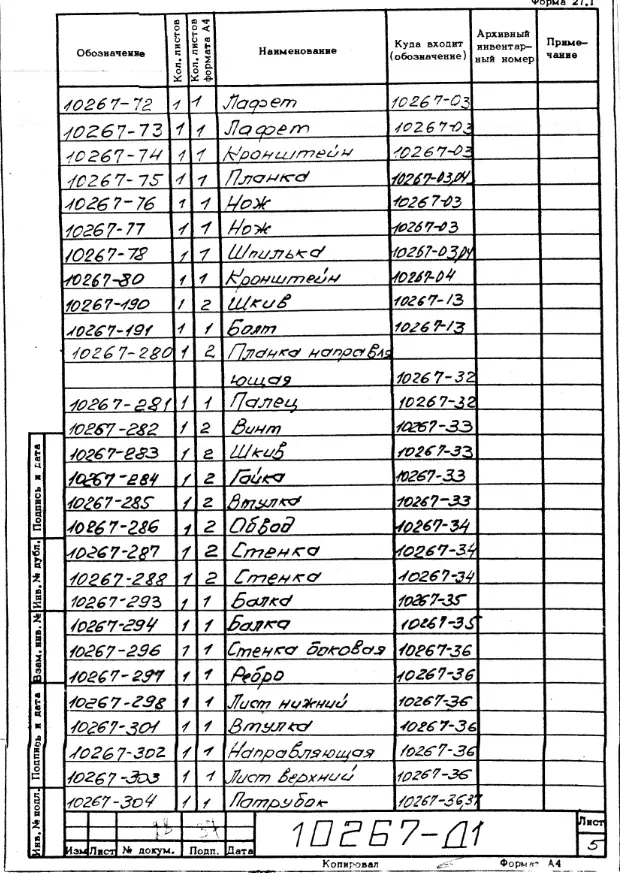 Форма 27.1
Обозначение Кол. листов Кол. листов формата А4 Наименование Куда входит (обозначение) Архивный инвентар- ный номер Приме- чание
10267-72 1 1 Лафет 10267-03
10267-73 1 1 Лафет 10267-03
10267-74 1 1 Кронштейн 10267-03
10267-75 1 1 Планка 10267-03,04
10267-76 1 1 Нож 10267-03
10267-77 1 1 Нож 10267-03
10267-78 1 1 Шпилька 10267-03,04
10267-80 1 1 Кронштейн 10267-04
10267-190 1 2 Шкив 10267-13
10267-191 1 1 Болт 10267-13
10267-280 1 2 Планка направля
ющая 10267-32
10267-281 1 1 Палец 10267-32
10267-282 1 2 Винт 10267-33
10267-283 1 2 Шкив 10267-33
10267-284 1 2 Гайка 10267-33
10267-285 1 2 Втулка 10267-33
10267-286 1 2 Обвод 10267-34
10267-287 1 2 Стенка 10267-34
10267-288 1 2 Стенка 10267-34
10267-293 1 1 Балка 10267-35
10267-294 1 1 Балка 10267-35
10267-296 1 1 Стенка боковая 10267-36
10267-297 1 1 Ребро 10267-36
10267-298 1 1 Лист нижний 10267-36
10267-301 1 1 Втулка 10267-36
10267-302 1 1 Направляющая 10267-36
10267-303 1 1 Лист верхний 10267-36
10267-304 1 1 Патрубок 10267-36,37
Подпись и дата
Инв. № дубл.
Взам. инв. №
Подпись и дата
Инв. № подл.
Изм Лист № докум. Подп. Дата
10267-Д1
Лист
5
Копировал Формат А4